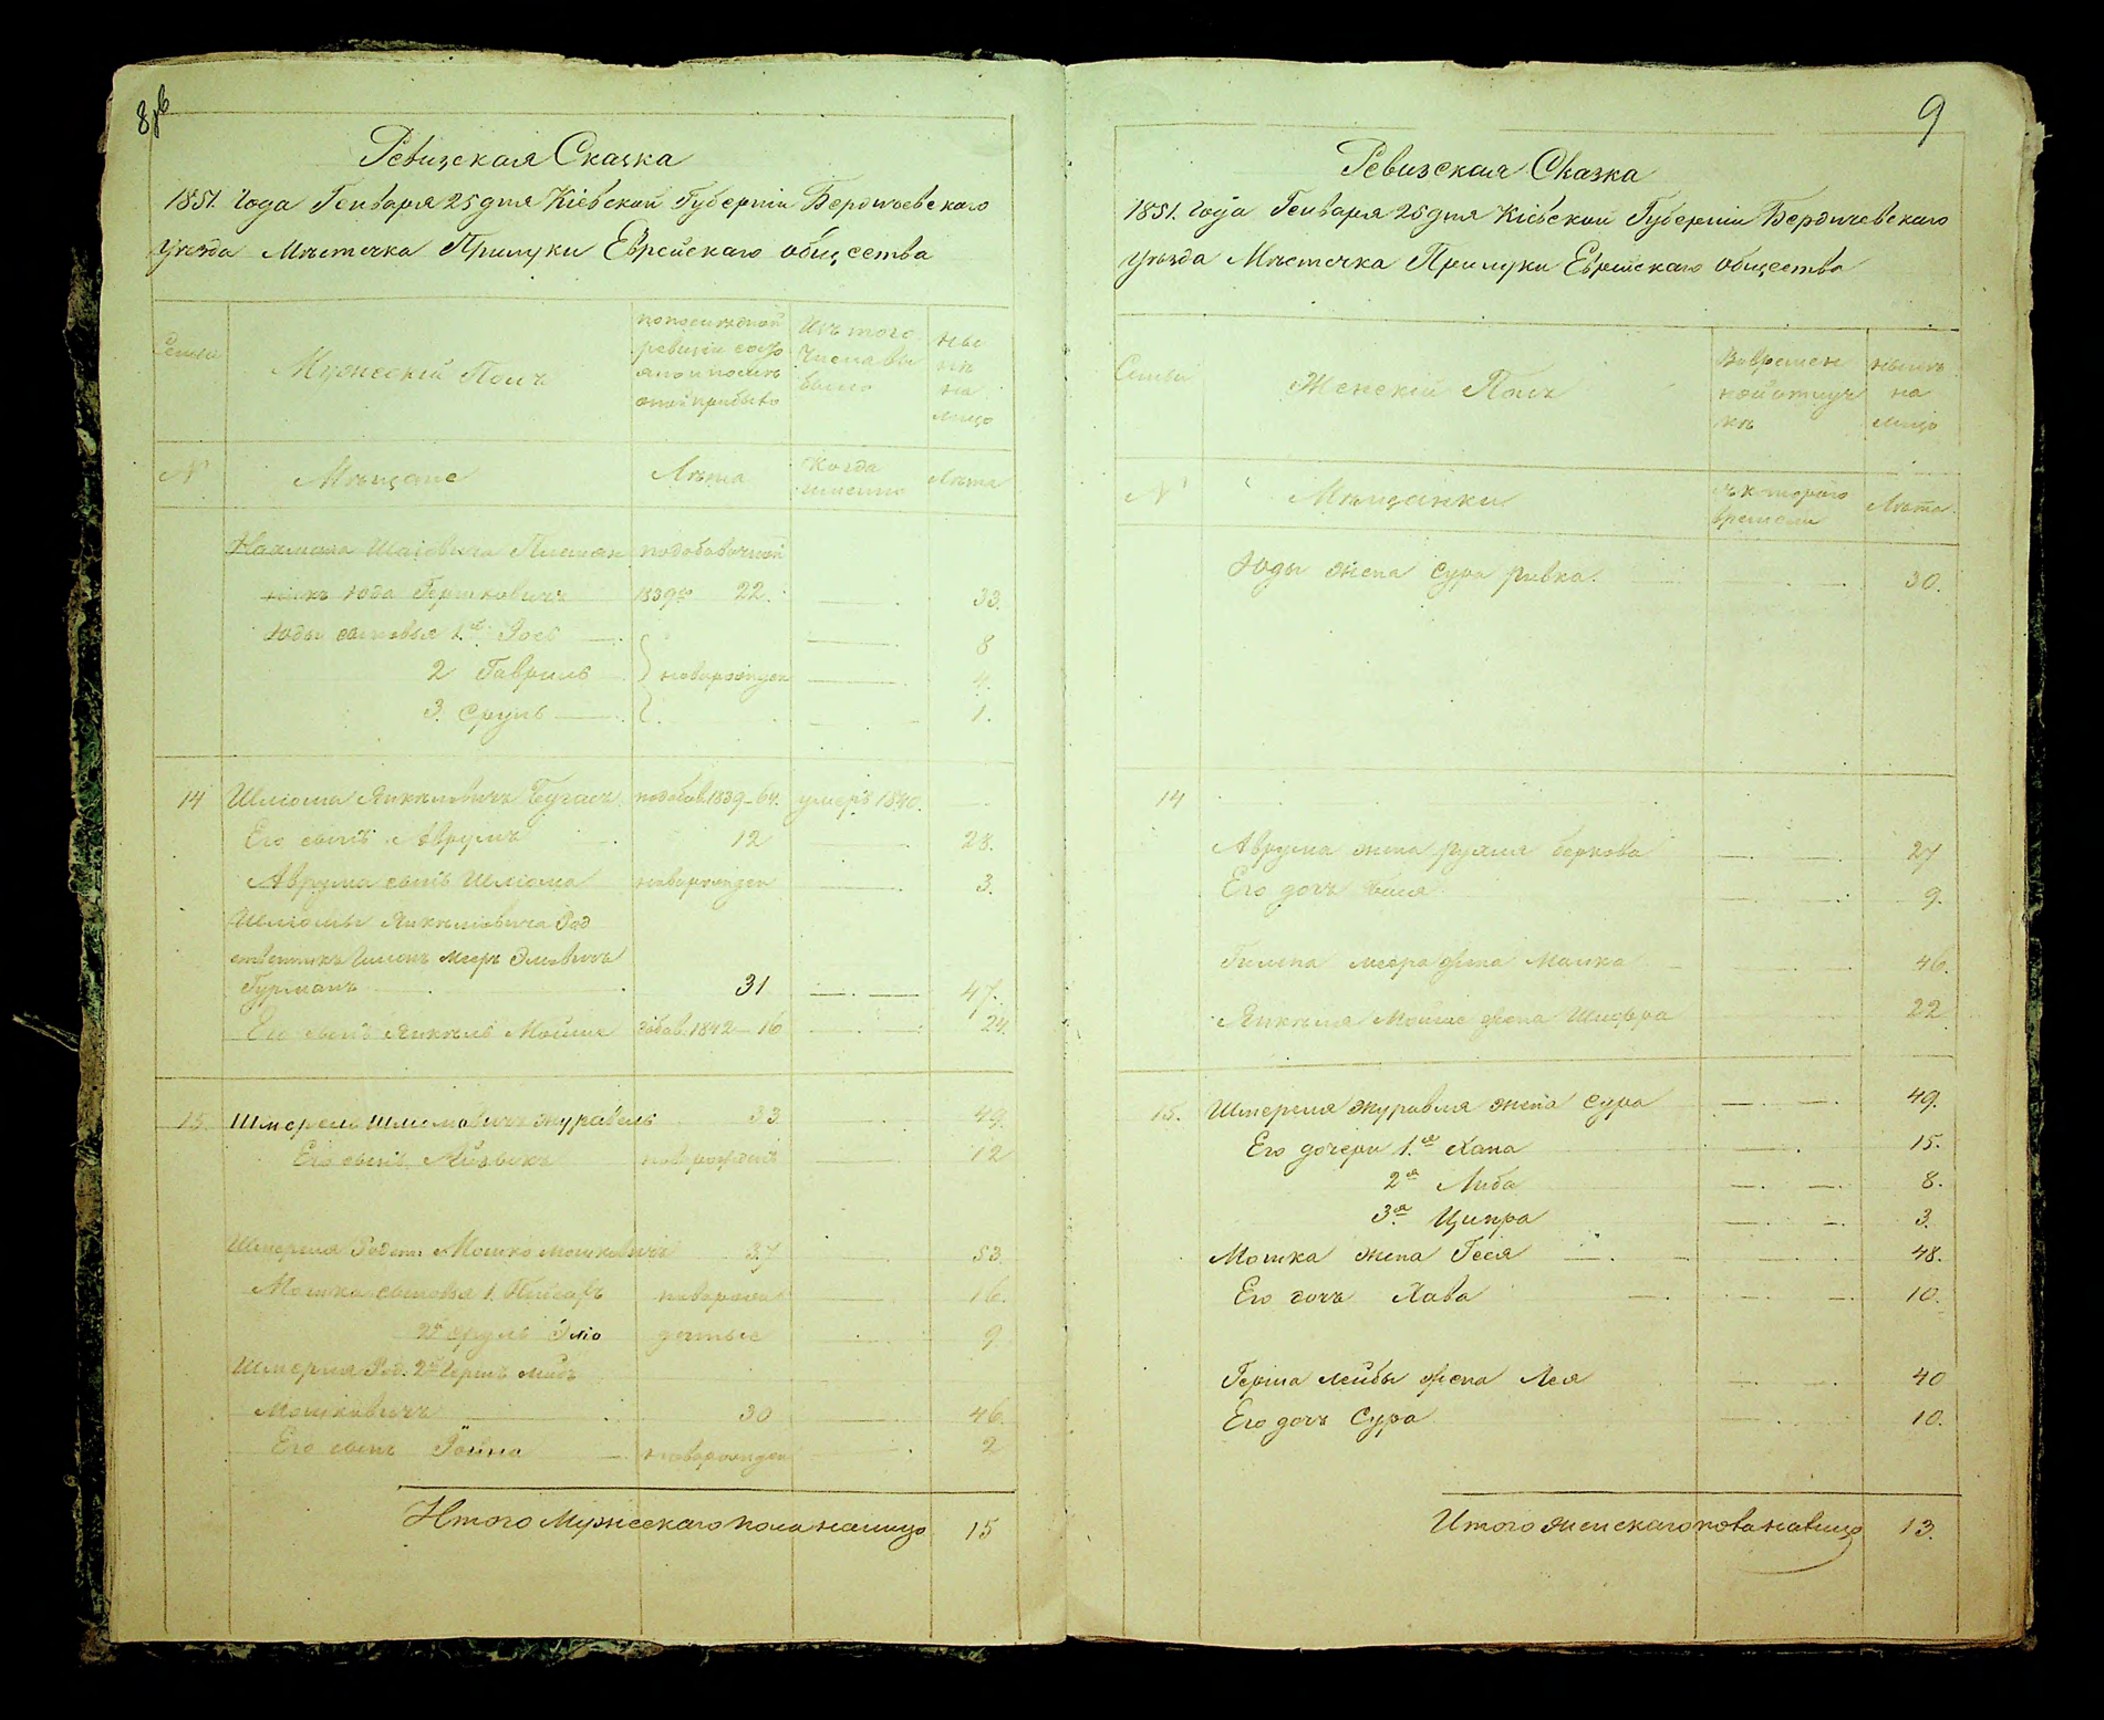 8 об
Ревизская Сказка
1851. года Генваря 25 дня Кіевской Губерніи Бердичевскаго
Уѣзда Мѣстечка Прилуки Еврейскаго общества
Семьи
Мужескій Полъ
по последней ревизіи состояло и послѣ оной прибыло
Изъ того числа выбыло
Нынѣ на лицо
№
Мѣщане
Лѣта
Когда именно
Лѣта
подобавочной
Іода Гершковичъ 1839го 22. 33.
Іоды сыновья 1.й 8
2 Гавриль новорожден 4.
3. Сруль 1.
14 Шліома Янкелевичъ подобав. 1839-64. умеръ 1840.
Его сынъ Аврумъ 12 28.
Аврума сынъ Шліома новорожден 3.
Шліомы Янкелевича Род
ственникъ Мееръ
Гурманъ 31 47.
Его сынъ Янкель Мойше добав. 1842-16 24.
15 Шмерель Шліомовичъ Журавель 33 49.
Его сынъ новорожден 12
Шмереля Родст: Мошко Мошковичъ 37 53.
Мошка сыновья 1. новорож 16.
2й Сруль Эліо денные 9
Шмереля Род. 2й Гершъ Лейбъ
Мошковичъ 30 46.
Его сынъ новорожден 2
Итого Мужескаго пола налицо 15
9
Ревизская Сказка
1851. года Генваря 25 дня Кіевской Губерніи Бердичевскаго
Уѣзда Мѣстечка Прилуки Еврейскаго общества
Семьи
Женскій Полъ
Во временной отлучкѣ
Нынѣ на лицо
№
Мѣщанки
Съ котораго времени
Лѣта
Іоды жена Сура Ривка. 30.
14
Аврума жена Рухля Беркова 27
Его дочь 9.
Меера жена Малка 46.
Янкеля Мойше жена Шифра 22
15. Шмереля Журавля жена Сура 49.
Его дочери 1.я Хана 15.
2я Либа 8.
3.я Ципра 3.
Мошка жена Гея 48.
Его дочь Хава 10.
Герша Лейбы жена Лея 40
Его дочь Сура 10.
Итого женскаго пола налицо 13.